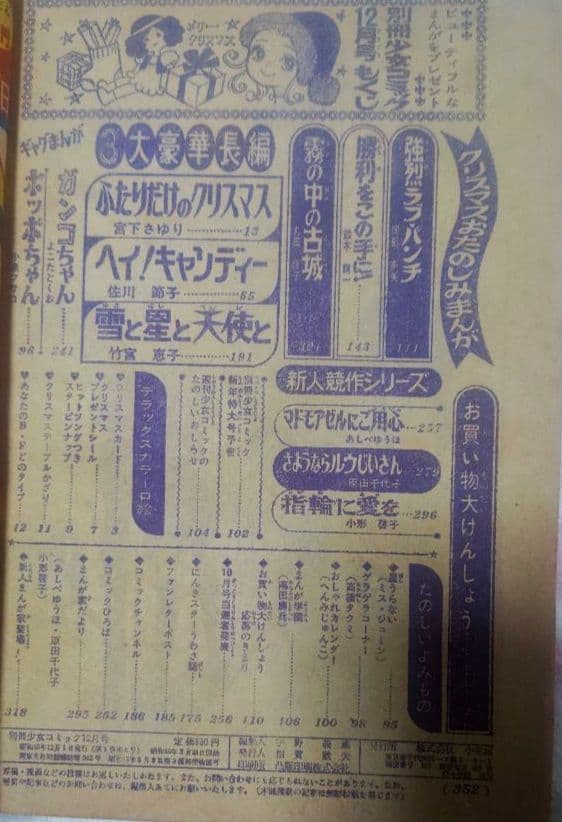 ビューティフルな
まんがをプレゼント
別冊少女コミック
12月号もくじ
メリー
クリスマス
クリスマスおたのしみまんが
強烈ラブ・パンチ
111
勝利をこの手に!
143
霧の中の古城
321
③大豪華長編
ふたりだけのクリスマス
宮下さゆり……13
ヘイ!キャンディー
佐川 節子……65
雪と星と天使と
竹宮 恵子……191
ギャグまんが
ガンコちゃん
よこたとくお
241
ポッポちゃん
96
お買い物大けんしょう
新人競作シリーズ
マドモアゼルにご用心
あしべゆうほ
…257
さようならルウじいさん
原田千代子
…279
指輪に愛を
小形 啓子
…296
別冊少女コミック
新年特大号予告
102
週刊少女コミックの
たのしいおしらせ
104
デラックスカラー口絵
♥クリスマスカード
3
♥クリスマス
プレゼントシール
7
♥ヒットソングつき
スターピンナップ
9
♥クリスマステーブルかざり
11
♥あなたのB・Fどのタイプ
12
たのしいよみもの
◆星うらない
(ミス・ジューン)
95
◆ゲラゲラコーナー
(高嶺タクミ)
98
◆おしゃれカレンダー
(へんみじゅんこ)
100
◆まんが学園
106
◆お買い物大けんしょう
応募のきまり
110
◆10月号当選者発表
256
◆にんきスターうわさ話
175
◆ファンレターポスト
185
◆コミックチャンネル
186
◆コミックひろば
252
◆まんが家だより
295
(あしべゆうほ/原田千代子
小形啓子)
◆新人まんが家登場
318
別冊少女コミック12月号
定価130円
凸版印刷株式会社
(352)